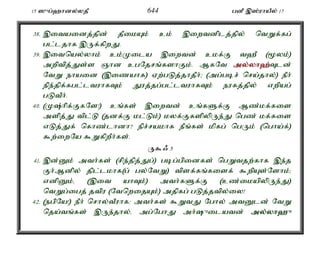 15 ஸுப்ஹானல்லதீ 644 பனீ இஸ்ராயீல் 17
38. இவையனைத்தின் தீமையும் உம் இறைவனிடத்தில் வெறுக்கப்
பட்டதாக இருக்கிறது.
39. இவையெல்லாம் உம்முடைய இறைவன் உமக்கு வஹீ (மூலம்)
அறிவித்துள்ள ஞான உபதேசங்களாகும். ஆகவே அல்லாஹ்வுடன்
வேறு நாயனை (இணையாக) ஏற்படுத்தாதீர்; (அப்படிச் செய்தால்) நீர்
நிந்திக்கப்பட்டவராகவும் தூரத்தப்பட்டவராகவும் நரகத்தில் எறியப்
படுவீர்.
40. (முஷ்ரிக்குகளே!) உங்கள் இறைவன் உங்களுக்கு ஆண்மக்களை
அளித்து விட்டு (தனக்கு மட்டும்) மலக்குகளிலிருந்து பெண் மக்களை
எடுத்துக் கொண்டானா? நிச்சயமாக நீங்கள் மிகப் பெரும் (பொய்க்)
கூற்றையே கூறுகிறீர்கள்.
ருகூஃ 5
41. இன்னும் அவர்கள் (சிந்தித்துப்) படிப்பினைகள் பெறுவதற்காக இந்த
குர்ஆனில் திட்டமாக(ப் பல்வேறு) விளக்கங்களைக் கூறியுள்ளோம்;
எனினும், (இவை யாவும்) அவர்களுக்கு (உண்மையிலிருந்து)
வெறுப்பைத் தவிர (வேறெதையும்) அதிகப் படுத்தவில்லை!
42. (நபியே!) நீர் சொல்வீராக: அவர்கள் கூறுவது போல் அவனுடன் வேறு
தெய்வங்கள் இருந்தால், அப்போது அர்ஷுடையவன் அல்லாஹு